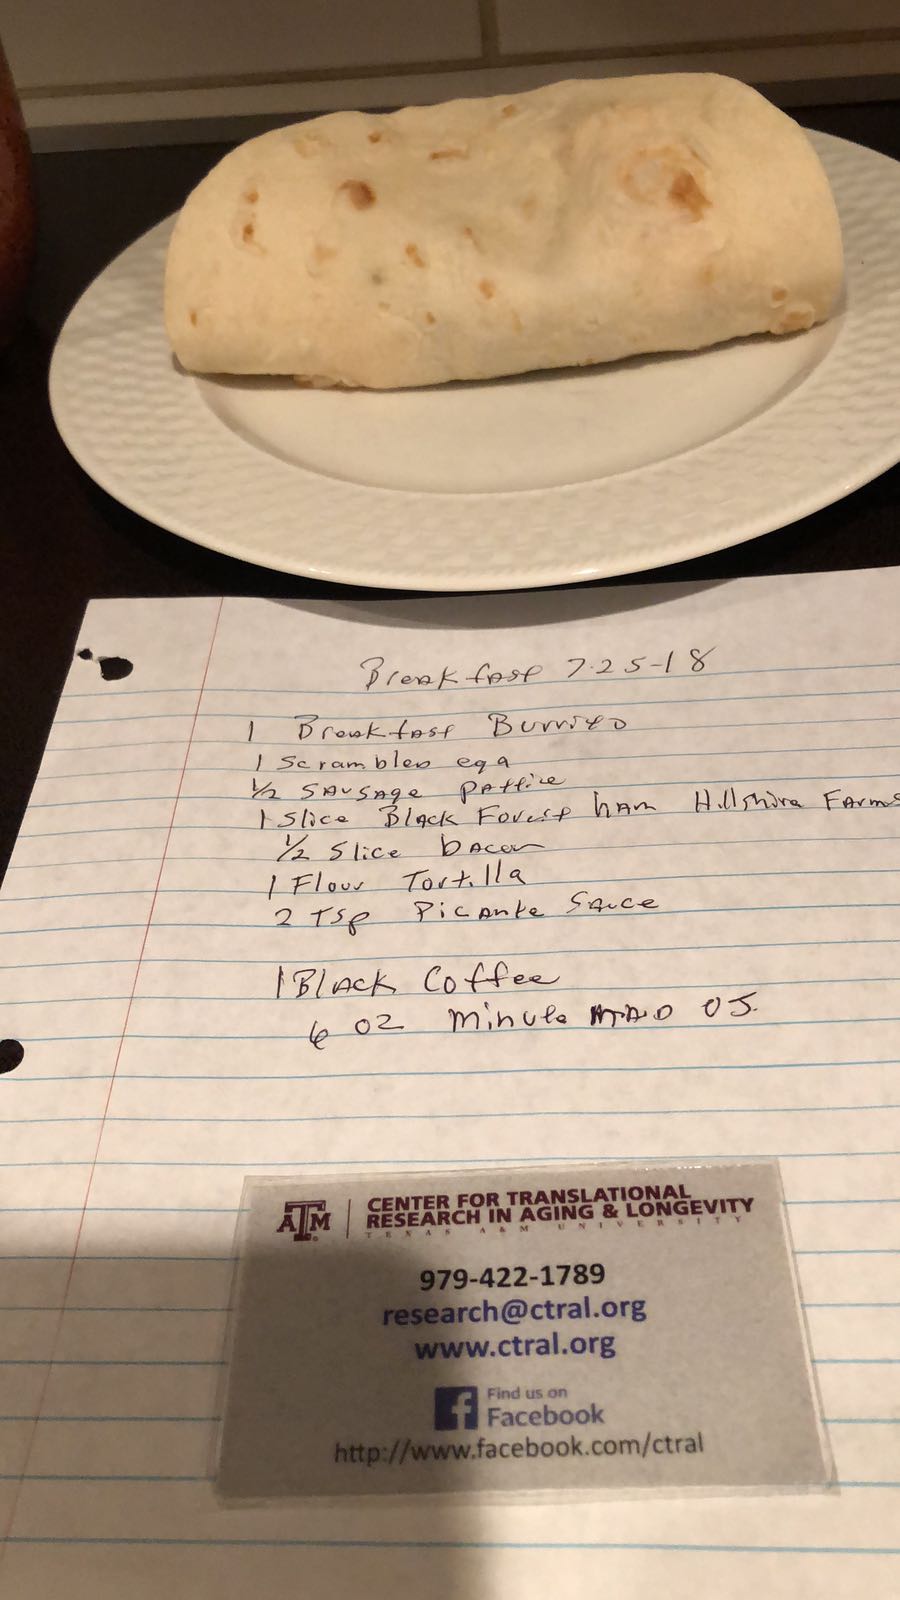 Breakfast 7-25-18
1 Breakfast Burrito
1 Scrambled egg
1/2 SAUSAGE Pattie
1 Slice Black Forest ham Hillshire FArms
1/2 Slice bacon
1 Flour Tortilla
2 Tsp Picante Sauce
1 Black Coffee
6 oz Minute MAID OJ.
ATM CENTER FOR TRANSLATIONAL
RESEARCH IN AGING & LONGEVITY
TEXAS A&M UNIVERSITY
979-422-1789
research@ctral.org
www.ctral.org
f Find us on
Facebook
http://www.facebook.com/ctral